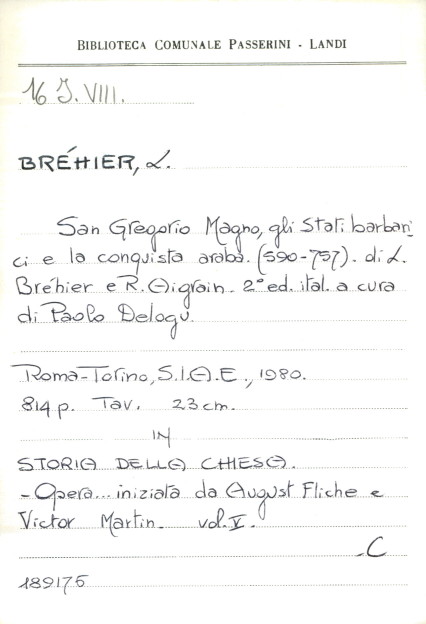 BIBLIOTECA COMUNALE PASSERINI - LANDI
16 J. VIII.
BRÉHIER, L.
San Gregorio Magno, gli Stati barbari
ci e la conquista araba. (590-757). di L.
Bréhier e R. Aigrain. 2ª ed. ital. a cura
di Paolo Delogu.
Roma-Torino, S.I.A.E., 1980.
814 p. Tav. 23 cm.
IN
STORIA DELLA CHIESA.
- Opera... iniziata da August Fliche e
Victor Martin. vol. V.
.C
189175